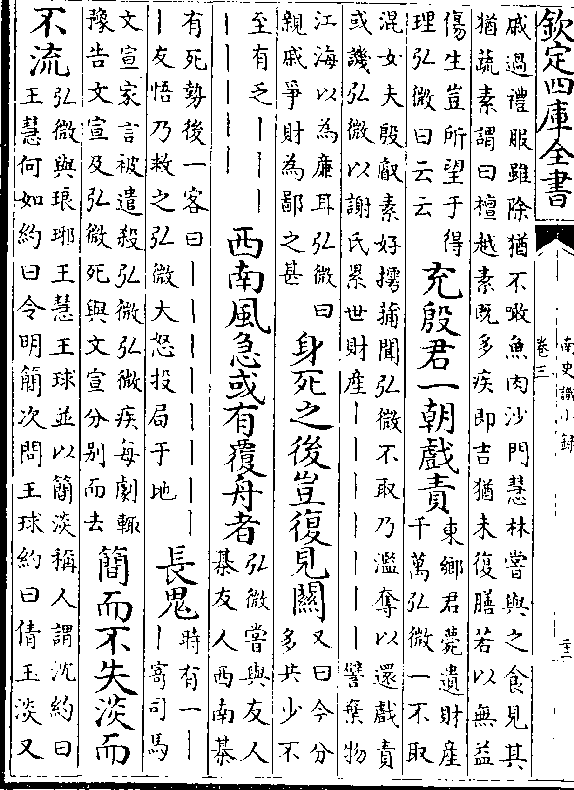 欽定四庫全書
南史識小録
卷三
戚過禮服雖除猶不噉魚肉沙門慧林嘗與之食見其
猶蔬素謂曰檀越素既多疾即吉猶未復膳若以無益
傷生豈所望于得
理弘微曰云云
充殷君一朝戲責
東鄉君薨遺財産
千萬弘微一不取
混女夫殷叡素好摴蒱聞弘微不取乃濫奪以還戲責
或譏弘微以謝氏累世財産｜｜｜｜｜｜｜譬棄物
江海以為廉耳弘微曰
親戚爭財為鄙之甚
身死之後豈復見關
又曰今分
多共少不
至有乏｜｜｜｜
｜｜｜｜
西南風急或有覆舟者
弘微嘗與友人
棊友人西南棊
有死勢後一客曰｜｜｜｜｜｜｜｜
｜友悟乃救之弘微大怒投局于地
長鬼
時有一｜
｜寄司馬
文宣家言被遣殺弘微弘微疾每劇輒
豫告文宣及弘微死與文宣分别而去
簡而不失淡而
不流
弘微與琅琊王慧王球並以簡淡稱人謂沈約曰
王慧何如約曰令明簡次問王球約曰倩玉淡又